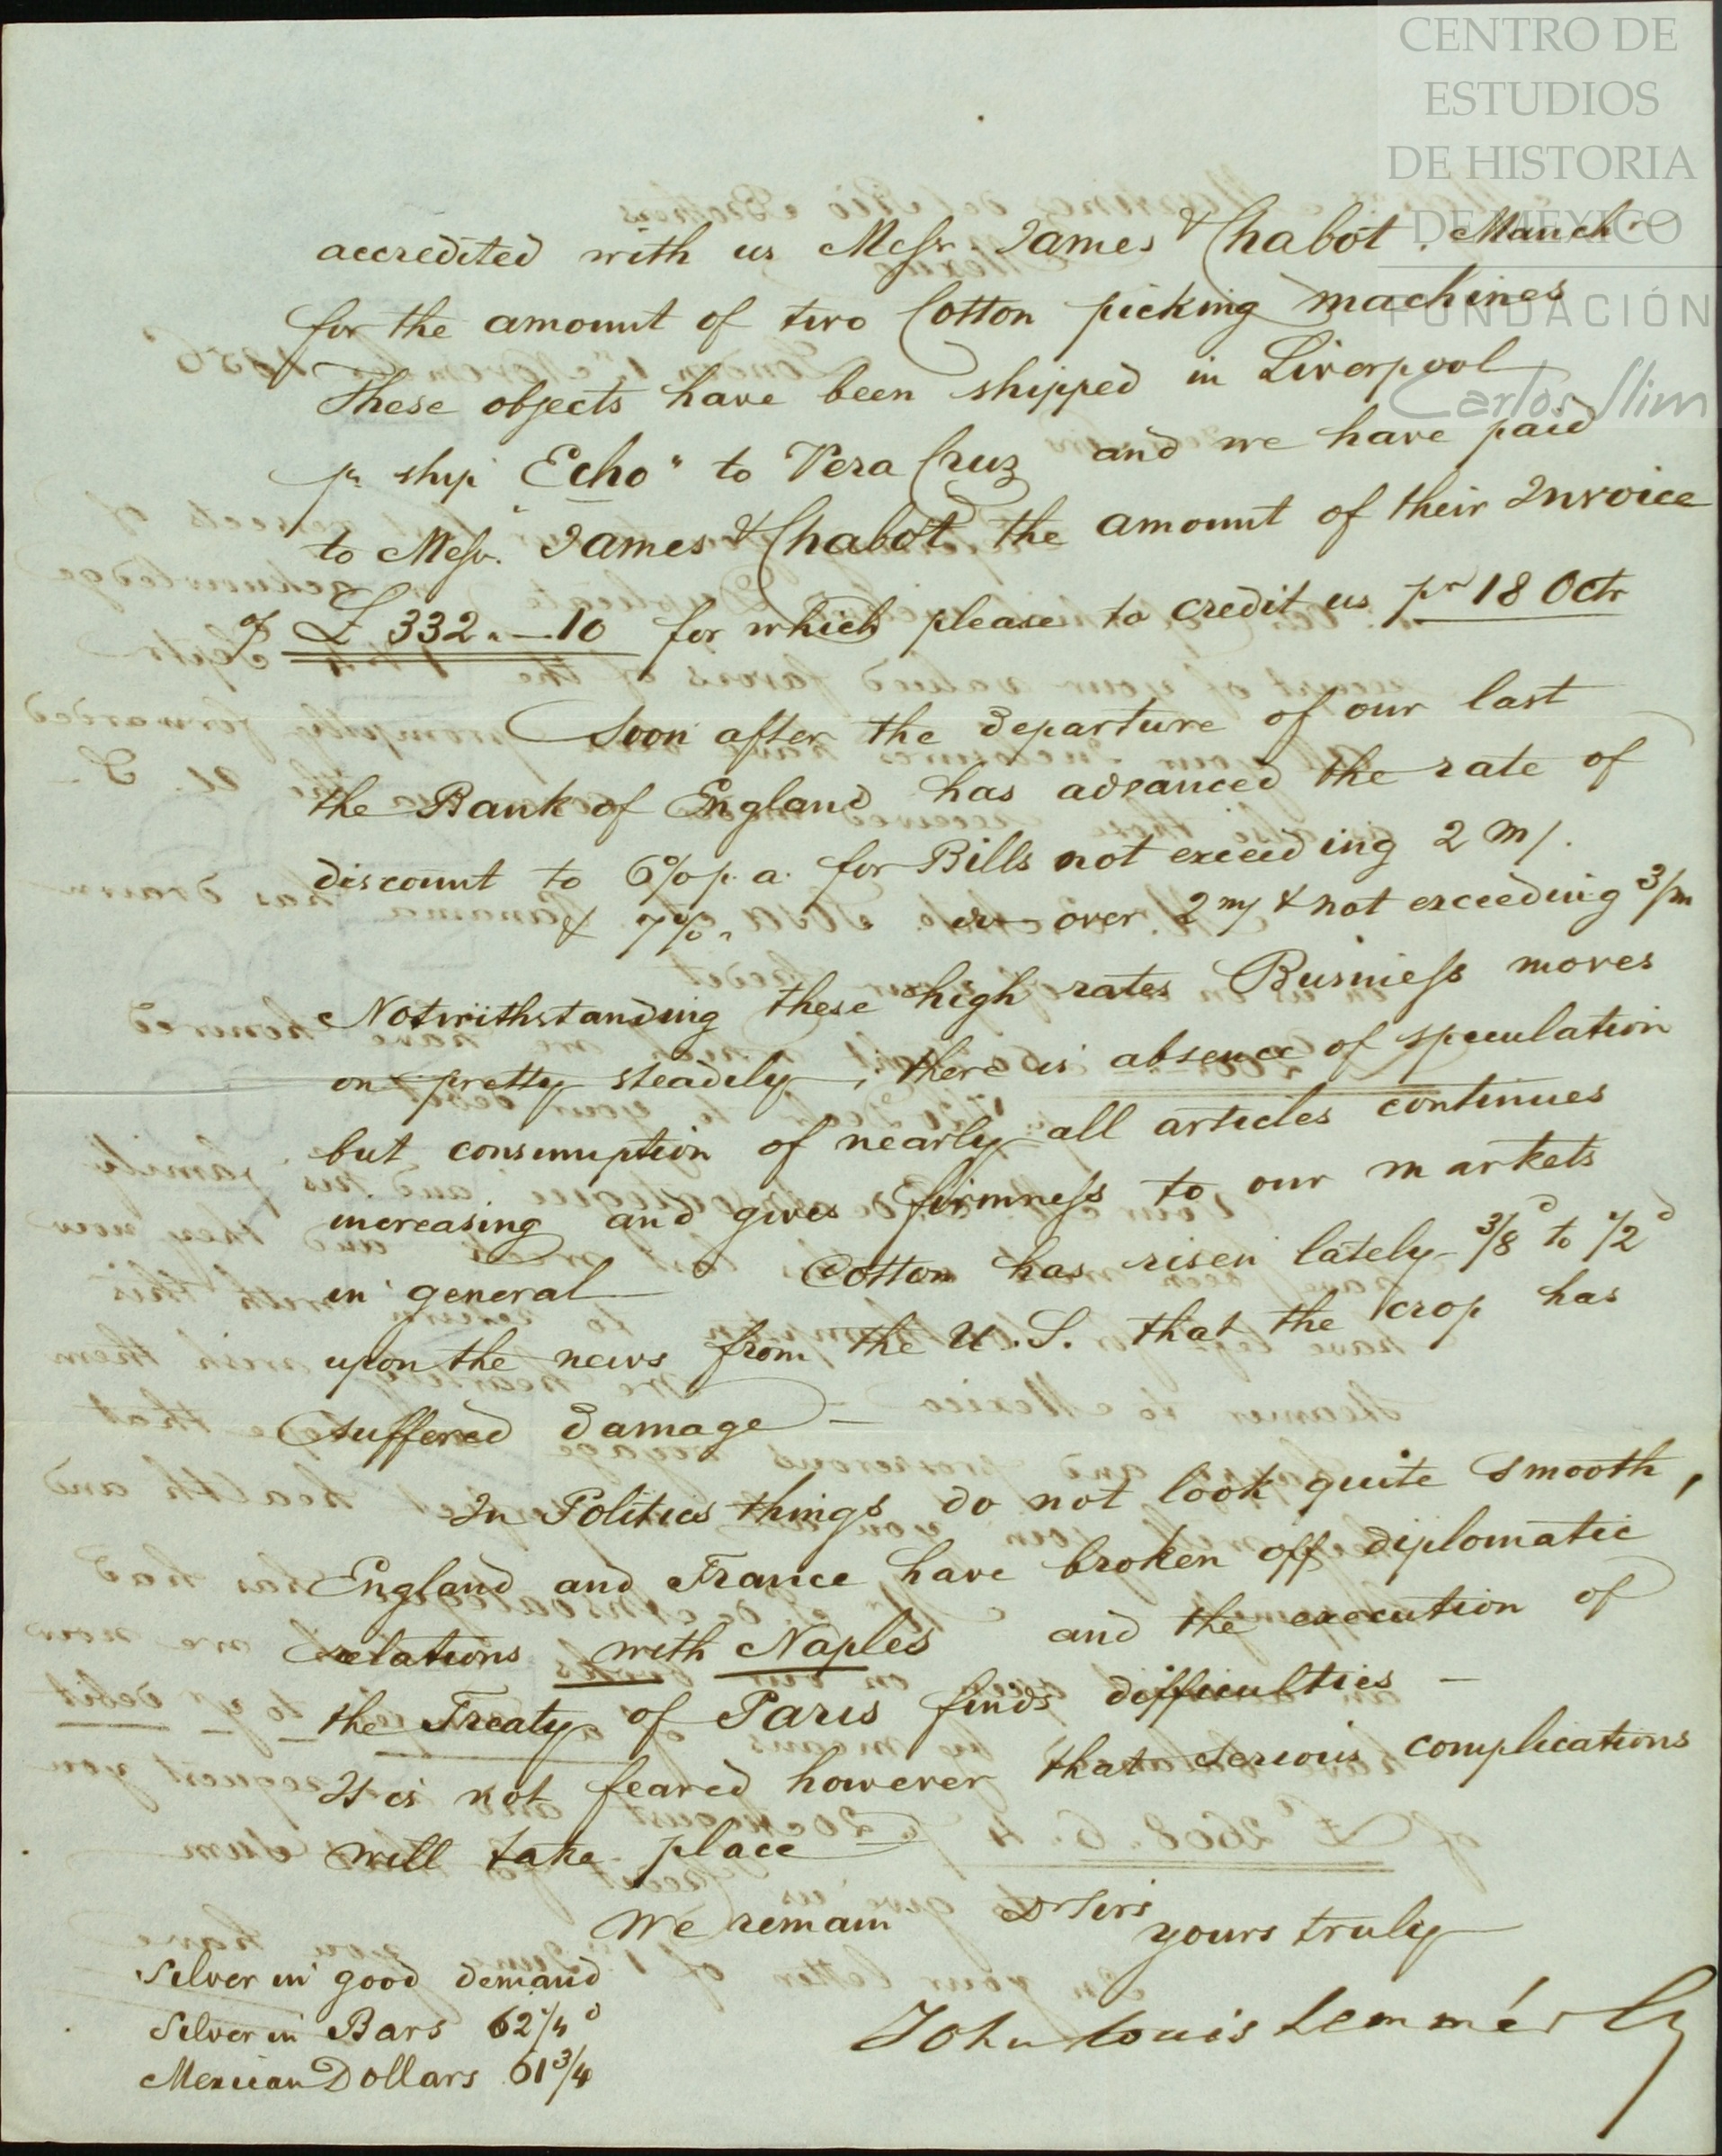 CENTRO DE
ESTUDIOS
DE HISTORIA
DE MEXICO
FUNDACIÓN
Carlos Slim
accredited with us Messr James & Chabot. Manchr
for the amount of two Cotton picking machines
These objects have been shipped in Liverpool
pr ship "Echo" to Vera Cruz and we have paid
to Messr. James & Chabot the amount of their Invoice
of £ 332 " — 10 for which please to credit us pr 18 Octr
Soon after the departure of our last
the Bank of England has advanced the rate of
discount to 6% p. a. for Bills not exceeding 2 m/.
& 7% " over 2 m/ & not exceeding 3/m
Notwithstanding these high rates Business moves
on pretty steadily, there is absence of speculation
but consumption of nearly all articles continues
increasing and gives firmness to our markets
in general Cotton has risen lately 3/8 d to 1/2 d
upon the news from the U. S. that the crop has
suffered damage —
In Politics things do not look quite smooth,
England and France have broken off diplomatic
relations with Naples and the execution of
the Treaty of Paris finds difficulties —
It is not feared however that serious complications
will take place
We remain Dr Sirs
yours truly
John Louis Lemmé & Cy
Silver in good demand
Silver in Bars 62 1/4 d
Mexican Dollars 61 3/4